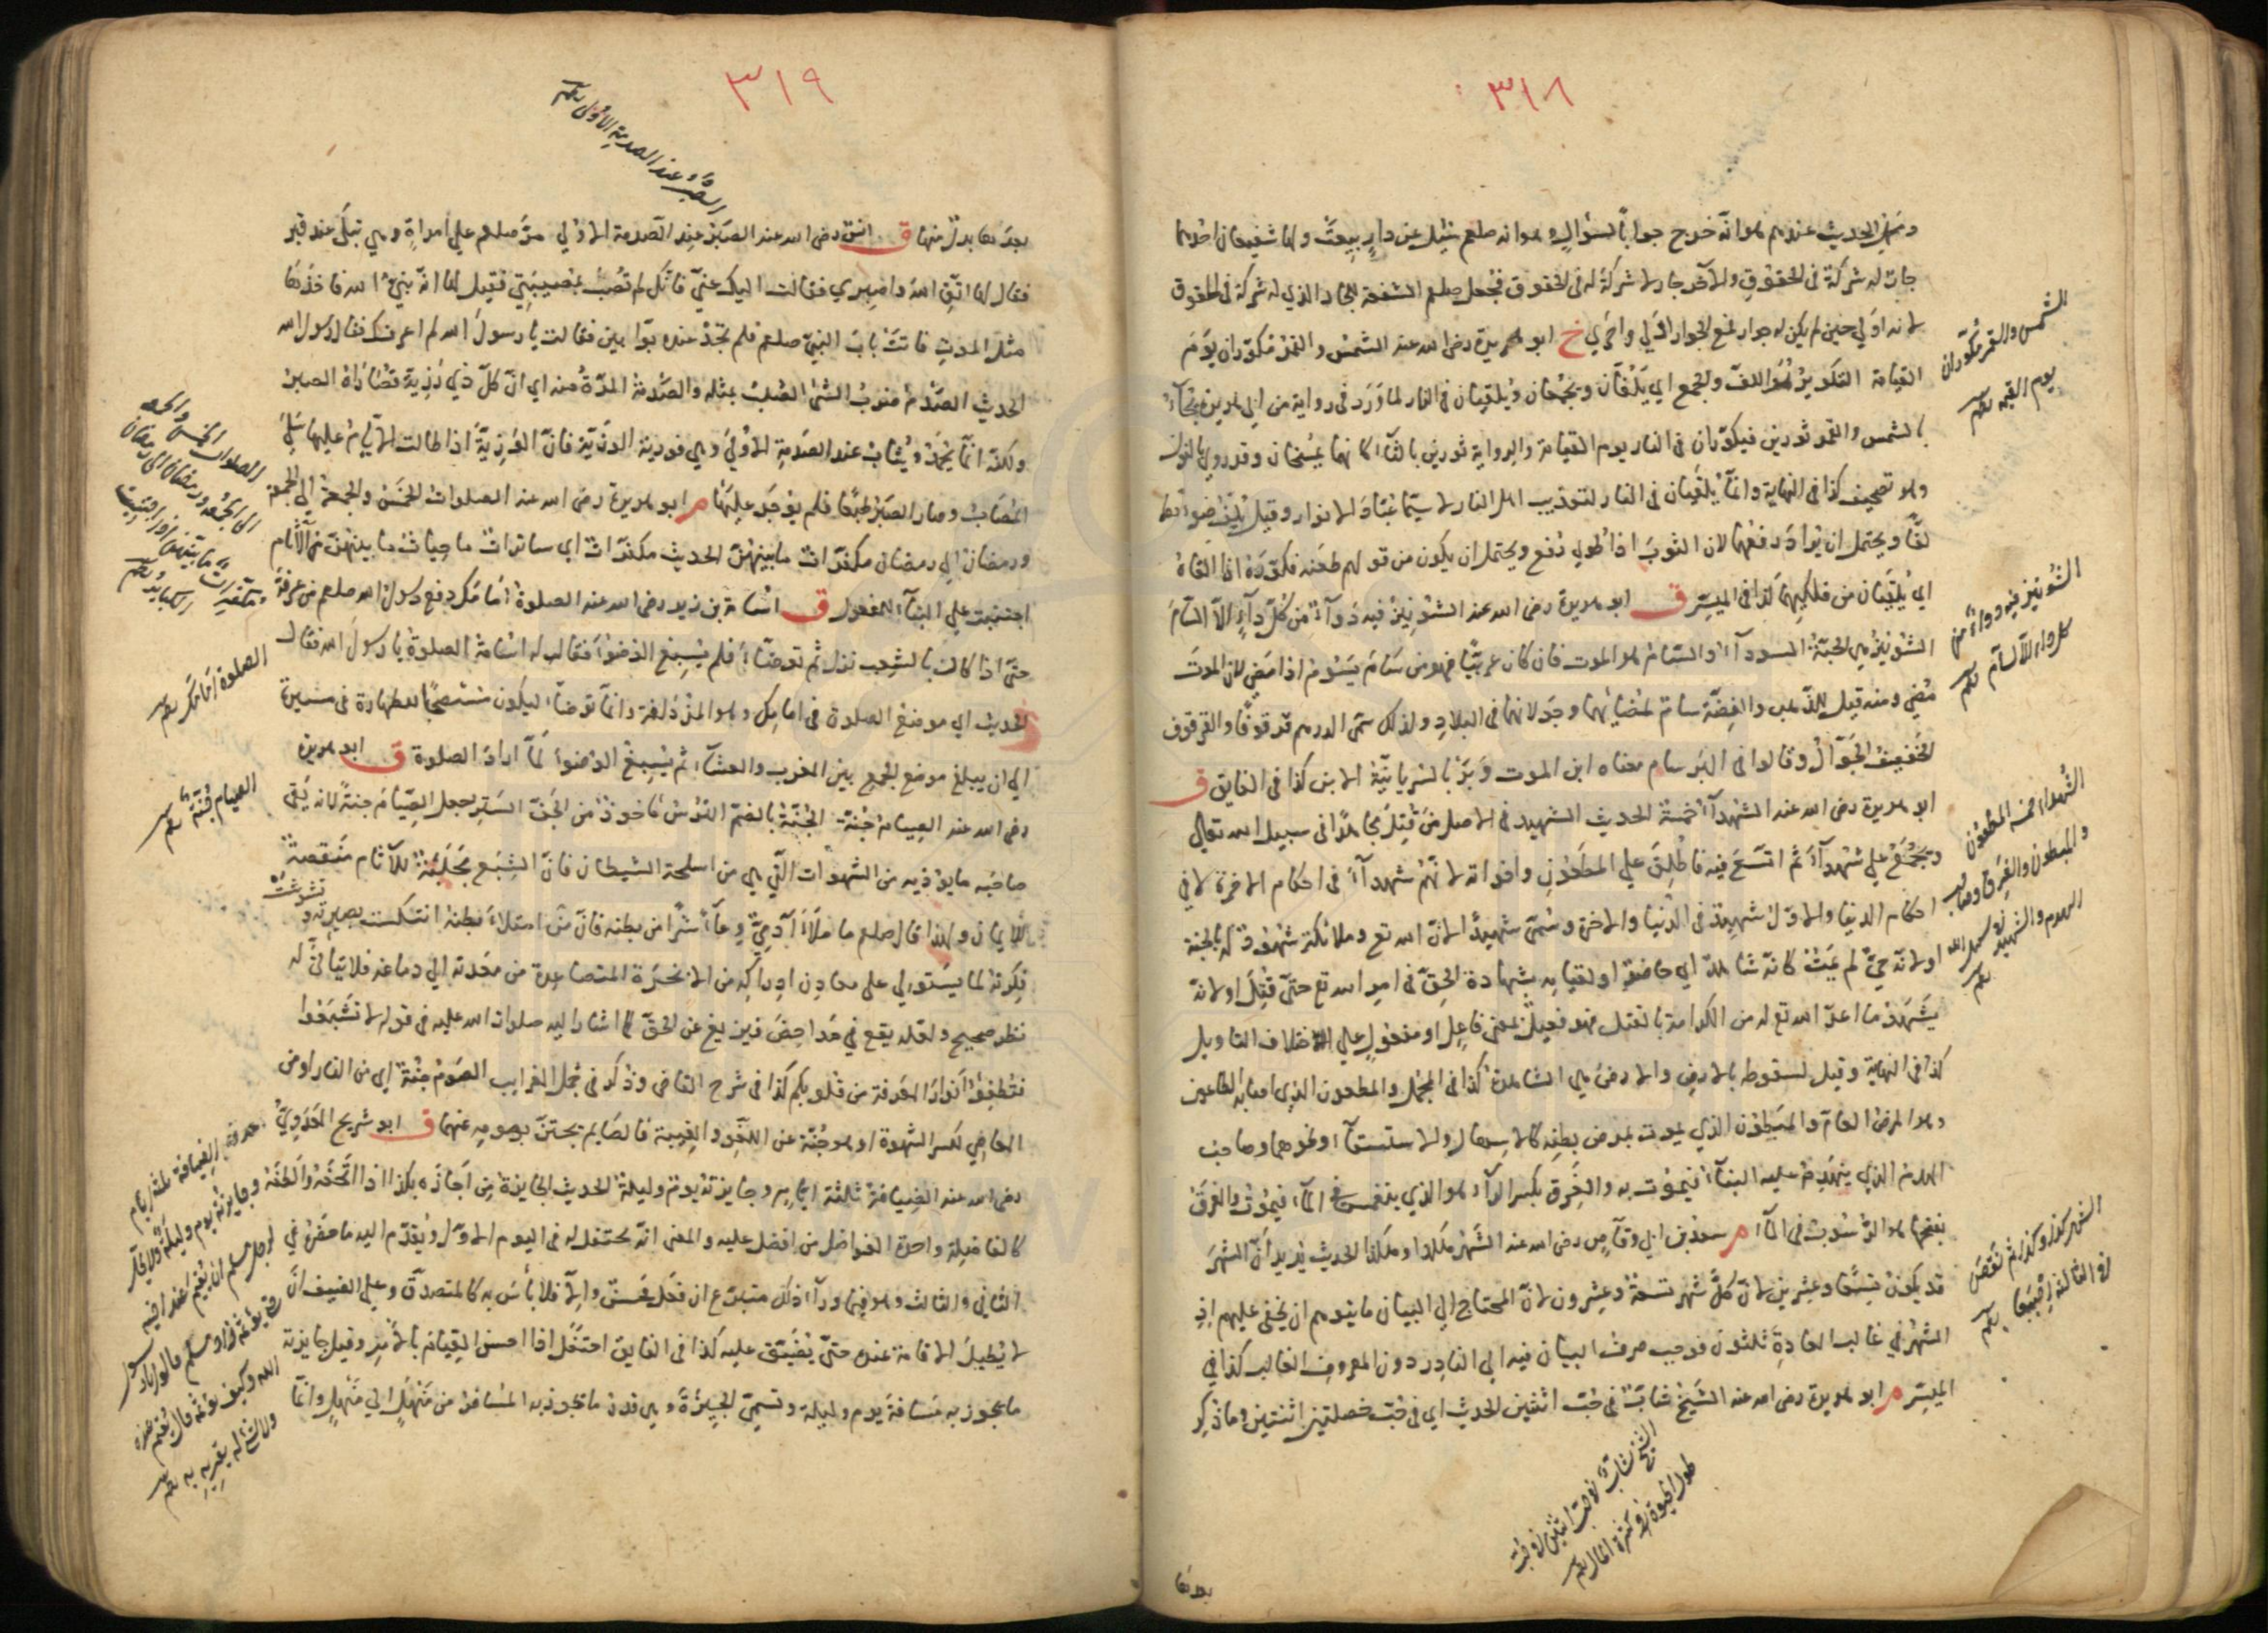 ٣١٨
جارٌ له شركة في الحقوق والآخر جار لا شركة له في الحقوق فجعل صلعم الشفعة للجار الذي له شركة في الحقوق
لانه اولي حين لم يكن له جوار لمنع الجوار اولي واحري خ ابو هريرة رضى الله عنه الشمس والقمر مكوران يوم
القيامة التكوير هو اللف والجمع اي يلفان ويجمعان ويلقيان في النار لما ورد في رواية من ابي هريرة يجاء
بالشمس والقمر ثورين فيكوران في النار يوم القيامة والرواية ثورين بالثاء كانهما يمسخان وقد روي بالنون
وهو تصحيف كذا في النهاية وانما يلقيان في النار لتعذيب اهل النار لا سيما عباد الانوار وقيل يلف ضوئهما
لفا ويحتمل ان يراد رفعهما لان الثوب اذا طوي رفع ويحتمل ان يكون من قولهم طعنه فكوره اذا القاه
اي يلقيان من فلكيهما كذا في الميسر ق ابو هريرة رضى الله عنه الشونيز فيه دواء من كل داء الا السام
الشونيز هي الحبة السوداء والسام هو الموت فان كان عربيا فهو من سام يسوم اذا مضي لان الموت
مضي ومنه قيل للذهب والفضة سام لمضائهما وجولانهما في البلاد ولذلك سمي الدرهم قرقوفا والقرقوف
الخفيف الجوال وقالوا في البرسام معناه ابن الموت وبر بالسريانية الابن كذا في الفايق ق
ابو هريرة رضى الله عنه الشهداء خمسة الحديث الشهيد في الاصل من قتل مجاهدا في سبيل الله تعالي
ويجمع علي شهداء ثم اتسع فيه فاطلق علي المطعون واخواته لانهم شهداء في احكام الاخرة لا في
احكام الدنيا والاول شهيد في الدنيا والاخرة وسمي شهيدا لان الله تع وملائكته شهود له بالجنة
او لانه حي لم يمت كانه شاهد اي حاضر او لقيامه بشهادة الحق في امر الله تع حتى قتل او لانه
يشهد ما اعد الله تع له من الكرامة بالقتل فهو فعيل بمعنى فاعل او مفعول علي اختلاف التاويل
كذا في النهاية وقيل لسقوطه بالارض والارض هي الشاهدة كذا في المجمل والمطعون الذي اصابه الطاعون
وهو المرض العام والمبطون الذي يموت بمرض بطنه كالاسهال والاستسقاء او نحوهما وصاحب
الهدم الذي ينهدم عليه البناء فيموت به والغرق بكسر الراء هو الذي ينغمس في الماء فيموت والغرق
بفتحها هو الرسوب في الماء م سعد بن ابي وقاص رضى الله عنه الشهر هكذا وهكذا الحديث يريد ان الشهر
قد يكون تسعا وعشرين لا ان كل شهر تسعة وعشرون لان المحتاج الي البيان ما يتوهم ان يخفى عليهم اذ
الشهر في غالب العادة ثلثون فوجب صرف البيان فيه الي النادر دون المعروف الغالب كذا في
الميسر م ابو هريرة رضى الله عنه الشيخ شاب في حب اثنين الحديث اي في حب خصلتين اثنتين وما ذكر
بعدها
الشمس والقمر مكوران
يوم القيمة
الشونيز فيه دواء من
كل داء الا السام
الشهداء خمسة المطعون
والمبطون والغرق وصاحب
الهدم والشهيد في سبيل الله
الشهر كذا وكذا ثم نقص
في الثالثة اصبعا
الشيخ شاب في حب اثنين في حب
طول الحيوة وكثرة المال
٣١٩
الصبر عند الصدمة الاولى
بعدها بدل منها ق انس رضى الله عنه الصبر عند الصدمة الاولي مر صلعم علي امراة وهي تبكي عند قبر
فقال لها اتق الله واصبري فقالت اليك عني فانك لم تصب بمصيبتي فقيل لها انه نبي الله فاخذها
مثل الموت فاتت باب النبي صلعم فلم تجد عنده بوابين فقالت يا رسول الله لم اعرفك فقال رسول الله
الحديث الصدم ضرب الشئ الصلب بمثله والصدمة المرة منه اي ان كل ذي رزية قصاراه الصبر
ولكنه انما يحمد ويثاب عند الصدمة الاولي وهي فورة الرزية فان الرزية اذا طالت الايام عليها سلي
المصاب وصار الصبر طبعا فلم يوجر عليها م ابو هريرة رضى الله عنه الصلوات الخمس والجمعة الي الجمعة
ورمضان الي رمضان مكفرات ما بينهن الحديث مكفرات اي ساترات ماحيات ما بينهن من الاثام
اجتنبت علي البناء للمفعول ق اسامة بن زيد رضى الله عنه الصلوة امامك دفع رسول الله صلعم من عرفة
حتى اذا كان بالشعب نزل ثم توضأ فلم يسبغ الوضوء فقال له اسامة الصلوة يا رسول الله فقال
الحديث اي موضع الصلوة في امامك وهو المزدلفة وانما توضأ ليكون مستصحبا للطهارة في مسيره
الي ان يبلغ موضع الجمع بين المغرب والعشاء ثم يسبغ الوضوء لما اراد الصلوة ق ابو هريرة
رضى الله عنه الصيام جنة الجنة بالضم الترس ماخوذ من الجن الستر جعل الصيام جنة لانه يقي
صاحبه ما يوذيه من الشهوات التي هي من اسلحة الشيطان فان الشبع مجلبة للاثام منقصة
للايمان ولهذا قال صلعم ما ملأ آدمي وعاء شرا من بطنه فان من امتلاء بطنه انتكست بصيرته وتشوشت
فكرته لما يستولي على معادن ادراكه من الابخرة المتصاعدة من معدته الي دماغه فلا يتأتى له
نظر صحيح ولعله يقع في مداحض فيزيغ عن الحق كما اشار اليه صلوات الله عليه في قوله لا تشبعوا
فتطفئوا انوار المعرفة من قلوبكم كذا في شرح القاضى وذكر في مجمل الغرايب الصوم جنة اي من النار او من
المعاصي لكسر الشهوة او هو جنة عن اللغو والغيبة فالصايم يجتن بصومه عنهما ق ابو شريح العدوي
رضى الله عنه الضيافة ثلثة ايام وجايزته يوم وليلة الحديث الجايزة من اجازه بكذا اذا اتحفه والطفه
كالفاضلة واحدة الفواضل من افضل عليه والمعنى انه يحتفل له في اليوم الاول ويقدم اليه ما حضر في
الثاني والثالث وهو فيما وراء ذلك متبرع ان فعل فحسن والا فلا بأس به كالمتصدق وعلي الضيف ان
لا يطيل الاقامة عنده حتى يضيق عليه كذا في الفايق احتفل اذا احسن القيام بالامر وقيل جايزته
ما يجوز به مسافة يوم وليلة وتسمي الجيزة وهي قدر ما يجوز به المسافر من منهل الي منهل وانما
الصلوات الخمس والجمعة
الى الجمعة ورمضان الى رمضان
مكفرات ما بينهن اذا اجتنبت
الكبائر
الصلوة امامك
الصيام جنة
الضيافة ثلثة ايام
وجايزته يوم وليلة ولا يحل
لرجل مسلم ان يقيم عند اخيه
حتى يؤثمه قالوا يا رسول
الله وكيف يؤثمه قال يقيم عنده
ولا شئ له يقريه به